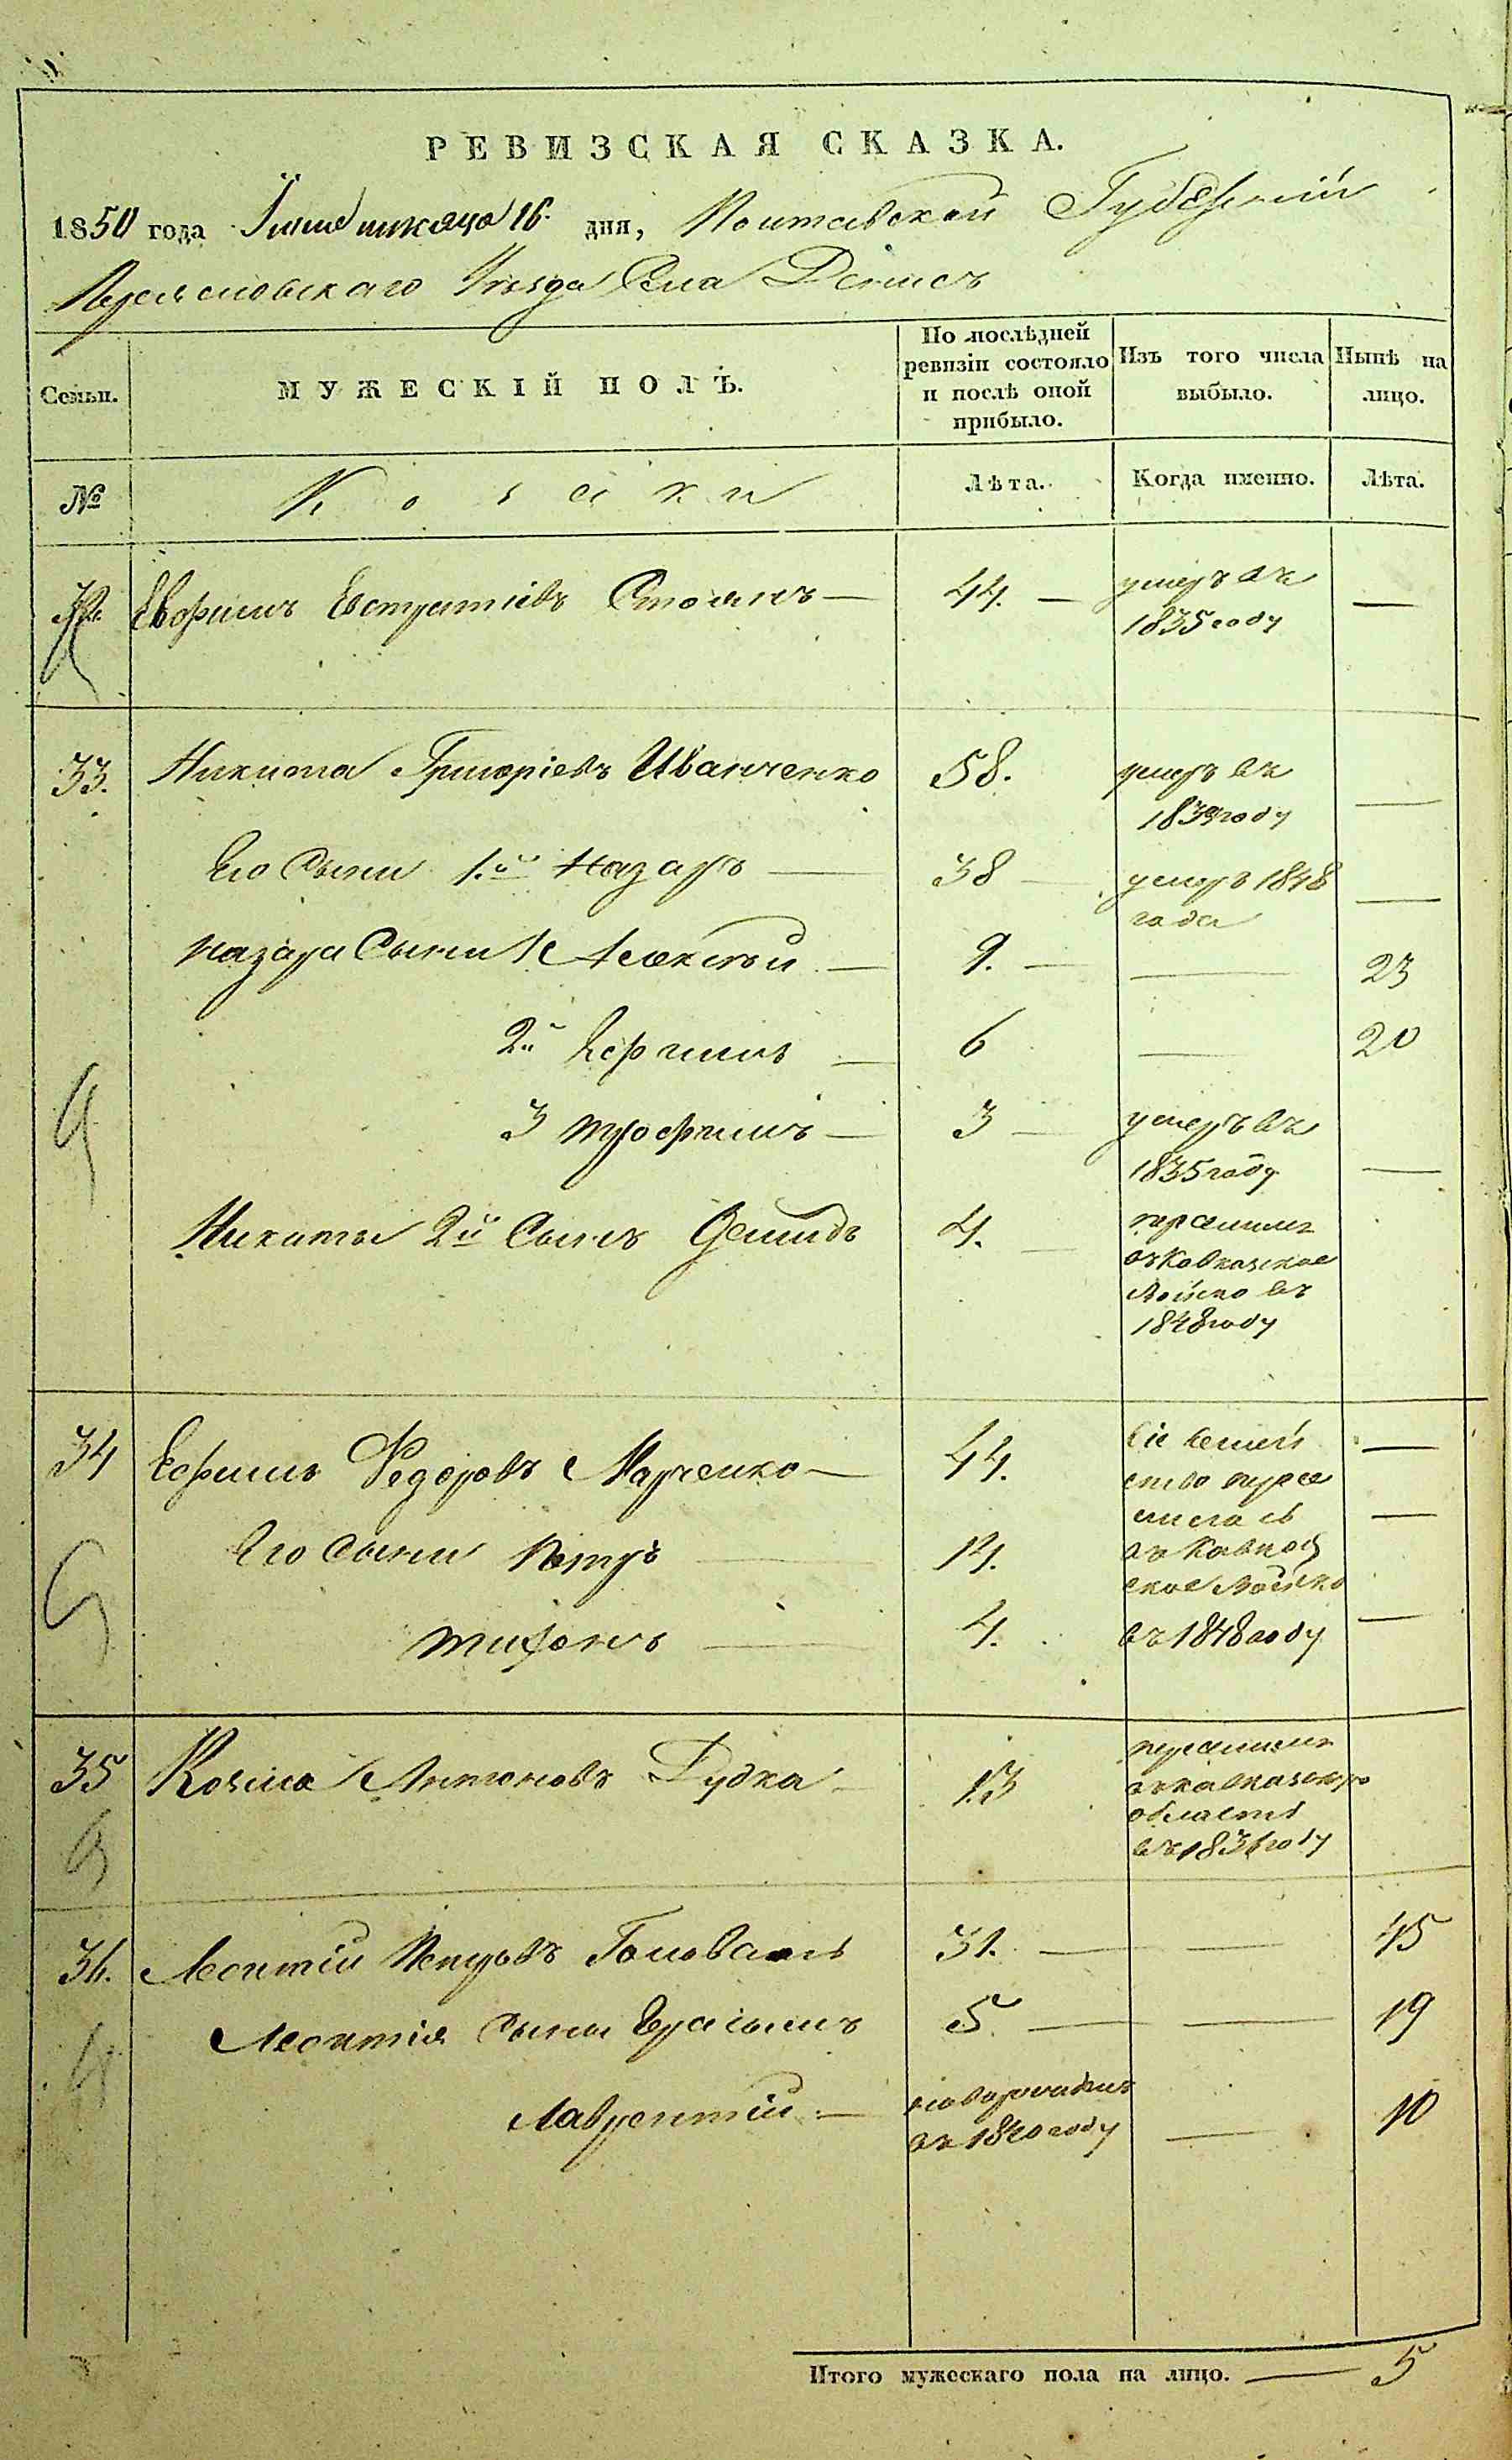 РЕВИЗСКАЯ СКАЗКА.
1850 года Iюля мѣсяца 16 дня, Полтавской Губернiи
Переясловскаго Уѣзда Села Денисъ
Семьи.
МУЖЕСКIЙ ПОЛЪ.
По послѣдней ревизiи состояло и послѣ оной прибыло.
Изъ того числа выбыло.
Нынѣ на лицо.
№
Козаки
Лѣта.
Когда именно.
Лѣта.
32. Евфимъ Евстратiевъ Стоянъ — 44. — умеръ въ 1835 году —
33. Никита Григорiевъ Иванченко 58. умеръ въ 1839 году —
Его Сыни 1й Назаръ — 38 — умеръ 1848 года —
Назара Сыни 1й Алексѣй — 9. — — 23
2й Ефимъ — 6 — 20
3 Трофимъ — 3 — умеръ въ 1835 году —
Никиты 2й Сынъ Демидъ 4. — перечисленъ въ Кавказкое Войско въ 1848 году
34 Ефимъ Федоровъ Марченко — 44. Сiе Семейство пересписась въ Кавказское Войско въ 1848 году —
Его Сыни Петръ — 14. —
Тихонъ — 4. —
35 Козма Антоновъ Дудка 13 въ кавказскую область въ году
36. Леонтiй Петровъ Головань 31. — — 45
Леонтiя Сыны Герасимъ 5. — — 19
Лаврентiй — новорожденъ въ 1840 году — 10
Итого мужескаго пола на лицо. — 5